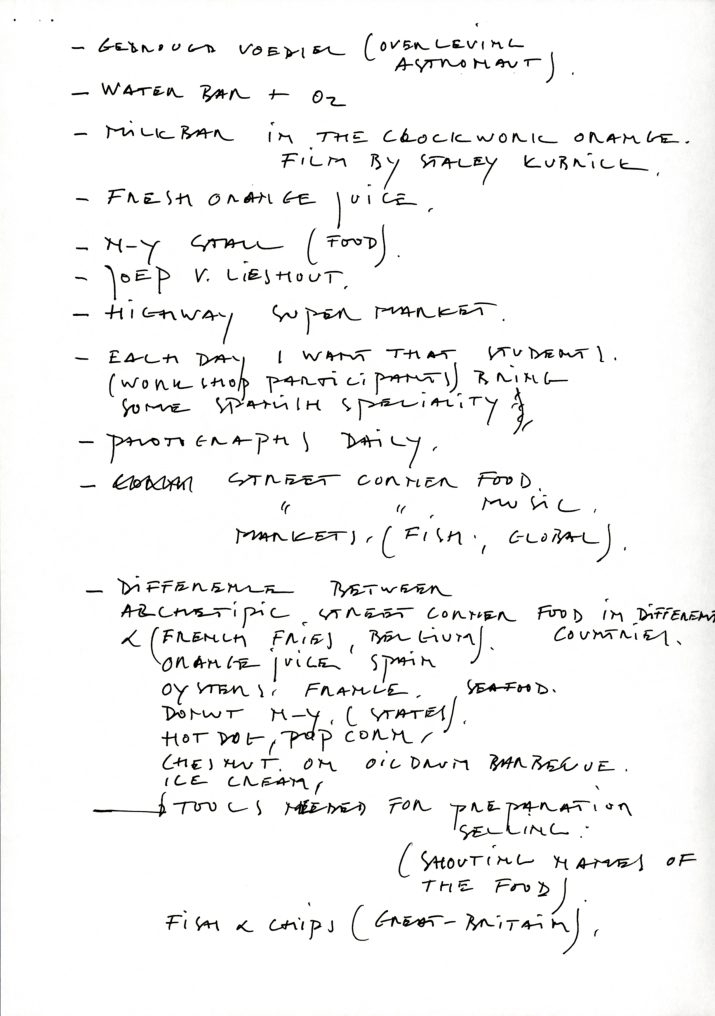 - GEDROUGD VOEDSEL (OVERLEVING
ASTRONAUT).
- WATER BAR + O2
- MILKBAR IN THE CLOCKWORK ORANGE.
FILM BY STALEY KUBRICK.
- FRESH ORANGE JUICE.
- N-Y STALL (FOOD).
- JOEP V. LIESHOUT.
- HIGHWAY SUPER MARKET.
- EACH DAY I WANT THAT STUDENTS.
(WORKSHOP PARTICIPANTS) BRING
SOME SPANISH SPECIALITY
- PHOTOGRAPHS DAILY.
- STREET CORNER FOOD.
" " MUSIC.
MARKETS, (FISH., GLOBAL).
- DIFFERENCE BETWEEN
ARCHETIPIC STREET CORNER FOOD IN DIFFERENT
& (FRENCH FRIES, BELGIUM). COUNTRIES.
ORANGE JUICE SPAIN
OYSTERS: FRANCE. SEAFOOD.
DONUT N-Y. (STATES).
HOT DOG, POP CORN,
CHESNUT. ON OILDRUM BARBECUE.
ICE CREAM,
TOOLS NEEDED FOR PREPARATION
SELLING.
(SHOUTING NAMES OF
THE FOOD)
FISH & CHIPS (GREAT-BRITAIN),